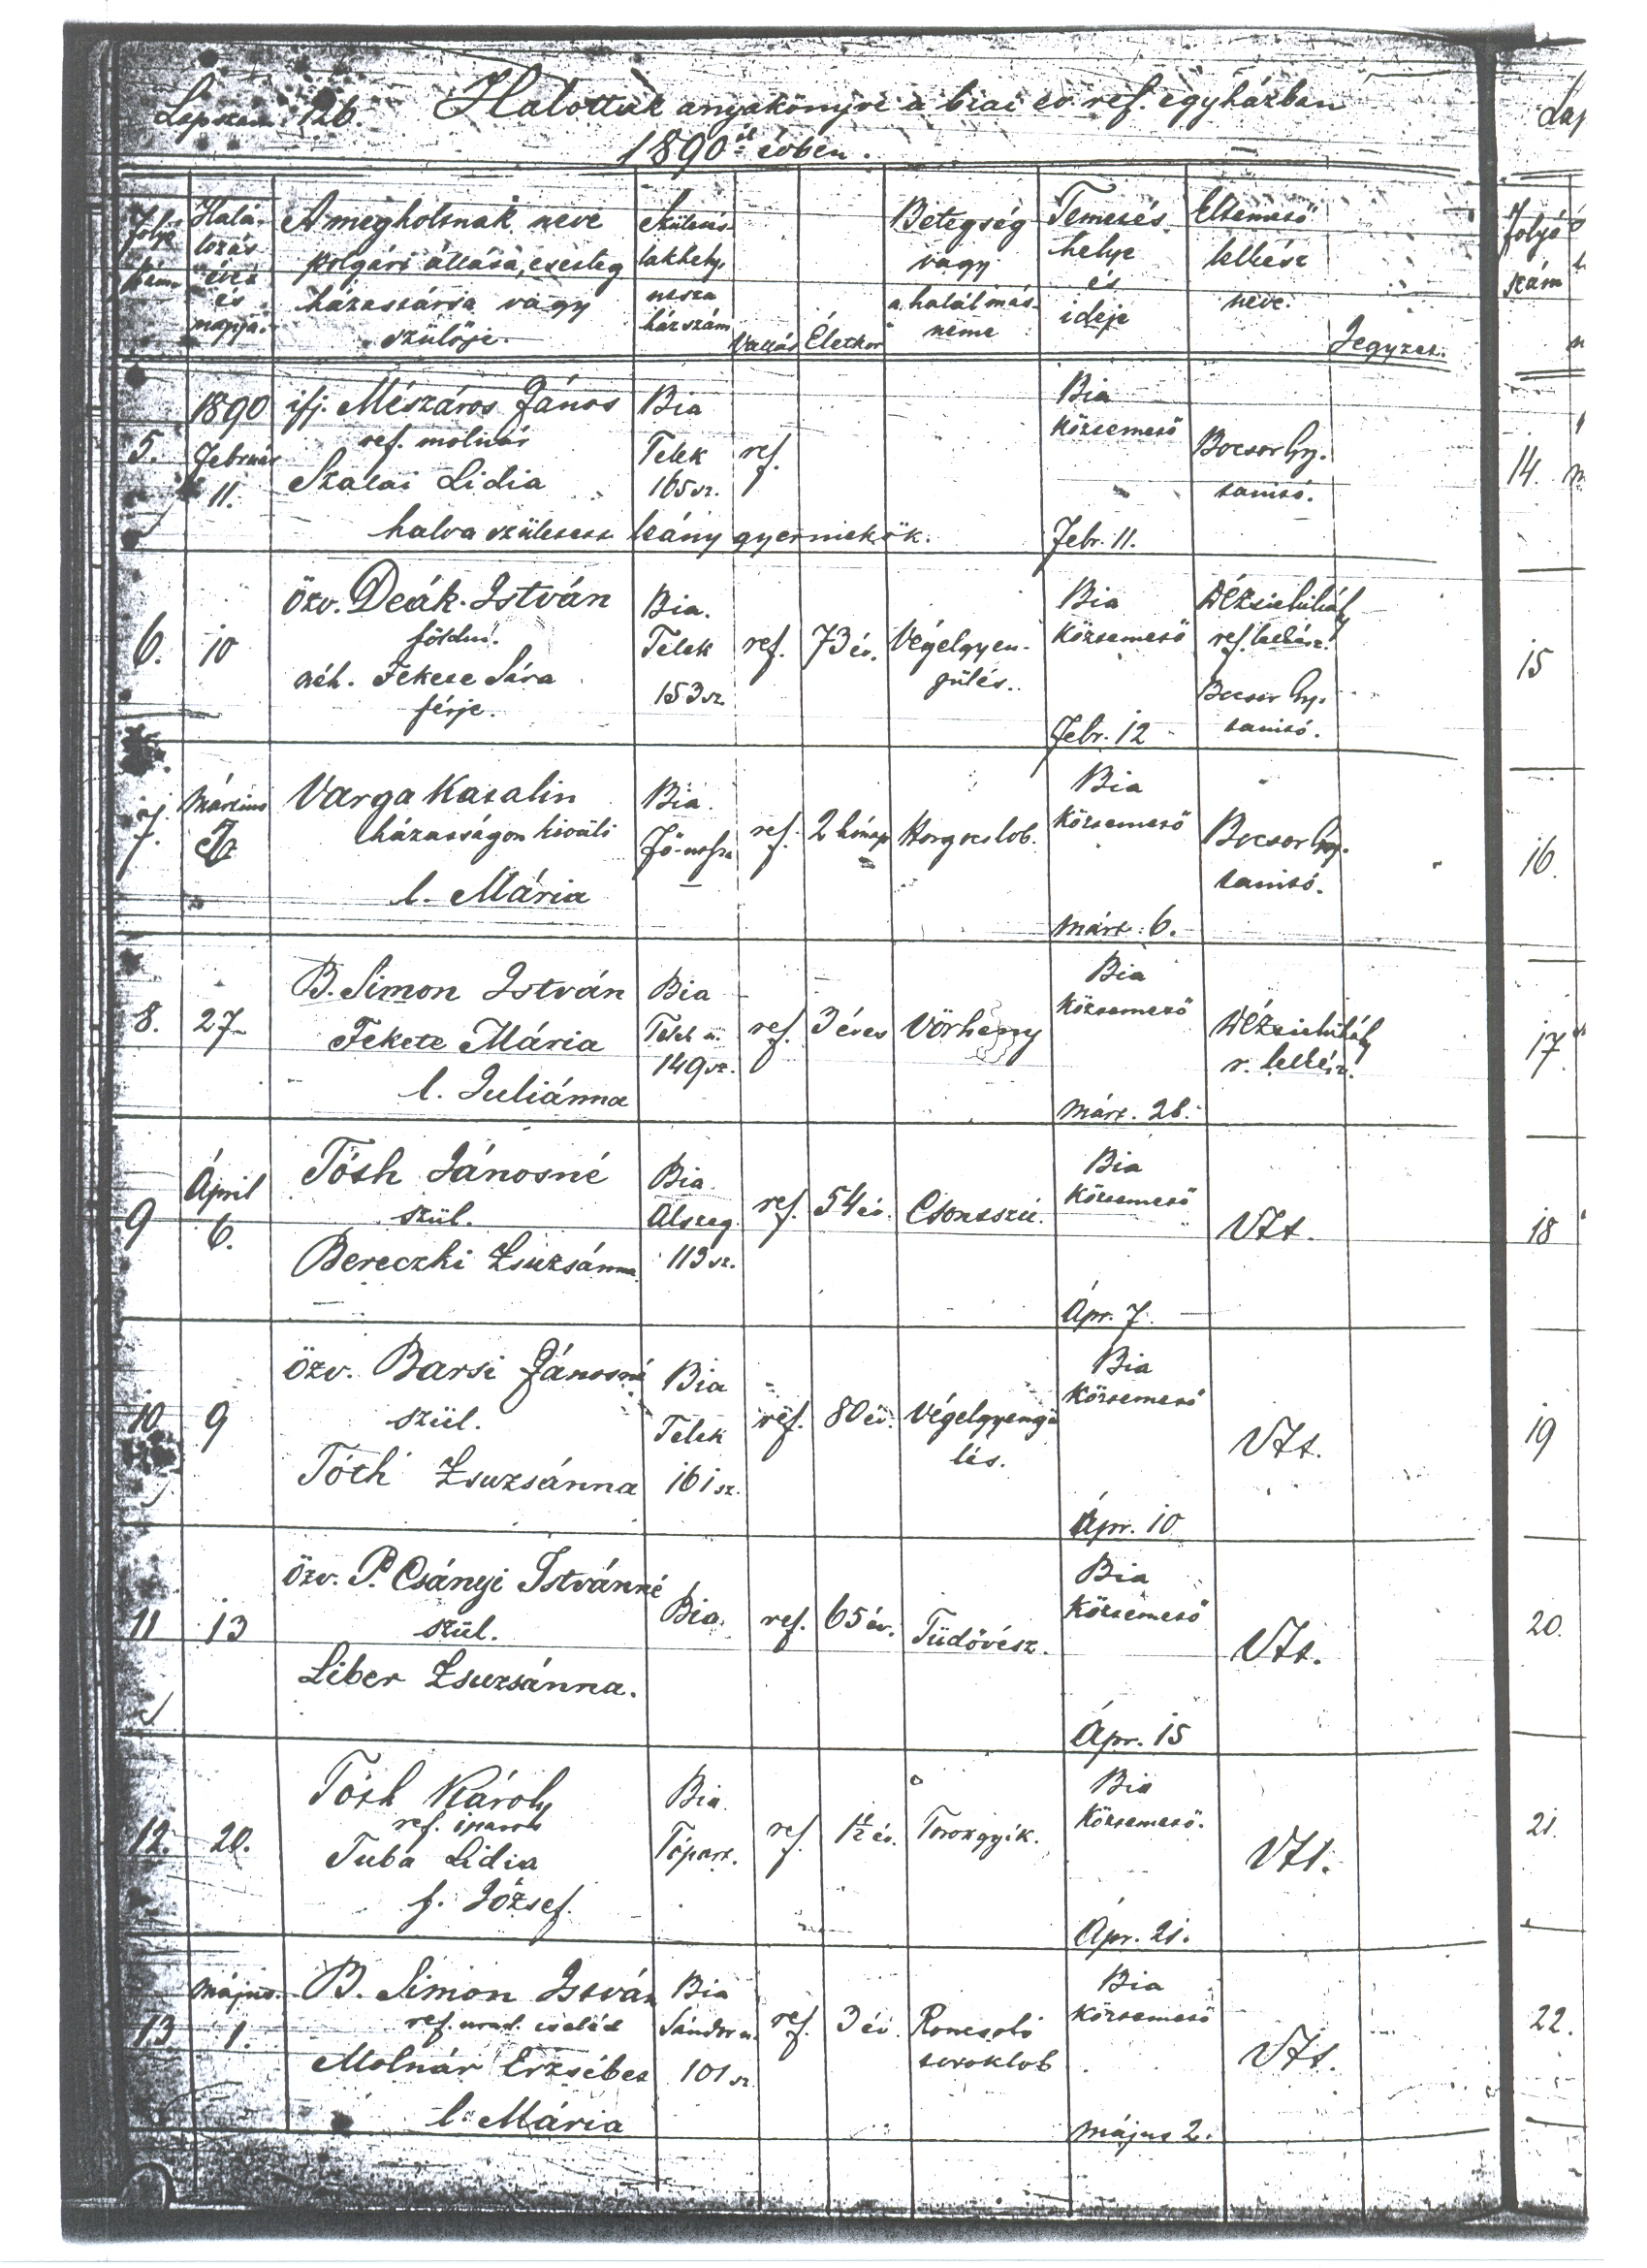 Lapszám 126. Halottak anyakönyve a biai ev. ref. egyházban
1890-ik évben.
Folyó szám
Halálozás éve és napja
A megholtnak neve polgári állása, esetleg házastársa vagy szülője.
Születés lakhely, utcza házszám
Vallás
Életkor
Betegség vagy a halál más neme
Temetés helye és ideje
Eltemető lelkész neve.
Jegyzet.
5.
1890 Február 11.
ifj. Mészáros János
ref. molnár
Szalai Lidia
halva született leány gyermekök.
Bia
Telek
165 sz.
ref.
Bia
köztemető
Febr. 11.
Bocsor Gy.
tanitó.
6.
10
özv. Deák István
földm.
néh. Fekete Sára
férje.
Bia.
Telek
153 sz.
ref.
73 év.
Végelgyen-
gülés.
Bia
köztemető
Febr. 12
ref. lelkész
Bocsor Gy.
tanitó.
7.
Márczius
Varga Katalin
házasságon kivüli
l. Mária
Bia.
Fő-utcza
ref.
2 hónap
Bia
köztemető
Márt. 6.
Bocsor Gy.
tanitó.
8.
27
B. Simon István
Fekete Mária
l. Juliánna
Bia
Telek u.
149 sz.
ref.
3 éves
Vörheny
Bia
köztemető
Márt. 28.
r. lelkész.
9
Ápril
6.
Tóth Jánosné
szül.
Bereczki Zsuzsánna
Bia
Alszeg.
113 sz.
ref.
54 év.
Csontszú.
Bia
köztemető
Ápr. 7.
U. az.
10
9
özv. Barsi Jánosné
szül.
Tóth Zsuzsánna
Bia
Telek
161 sz.
ref.
80 év.
Végelgyengü
lés.
Bia
köztemető
Ápr. 10
11
13
özv. P. Csányi Istvánné
szül.
Liber Zsuzsánna.
Bia.
ref.
65 év.
Tüdővész.
Bia
köztemető
Ápr. 15
12.
20.
Tóth Károly
ref. iparos
Tuba Lidia
f. József.
Bia
Tópart.
ref.
1½ év.
Torokgyík.
Bia
köztemető.
Ápr. 21.
13
Május
1.
B. Simon István
ref. urad. cseléd
Molnár Erzsébet
l. Mária
Bia
Sándor u.
101 sz.
ref.
3 év.
Roncsoló
toroklob
Bia
köztemető
Május 2.
Lap
Folyó
szám
14.
15
16.
17
18
19
20.
21.
22.